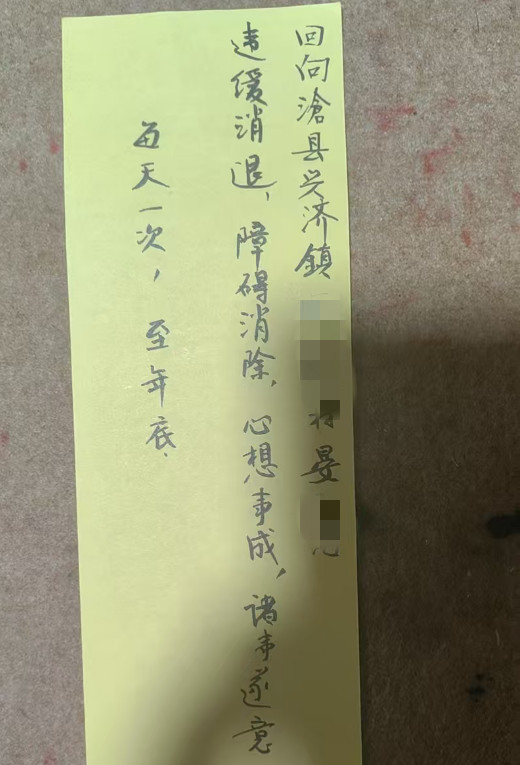 回向滄县兴济鎮 村晏
违缓消退，障碍消除，心想事成，诸事遂意
每天一次，至年底.